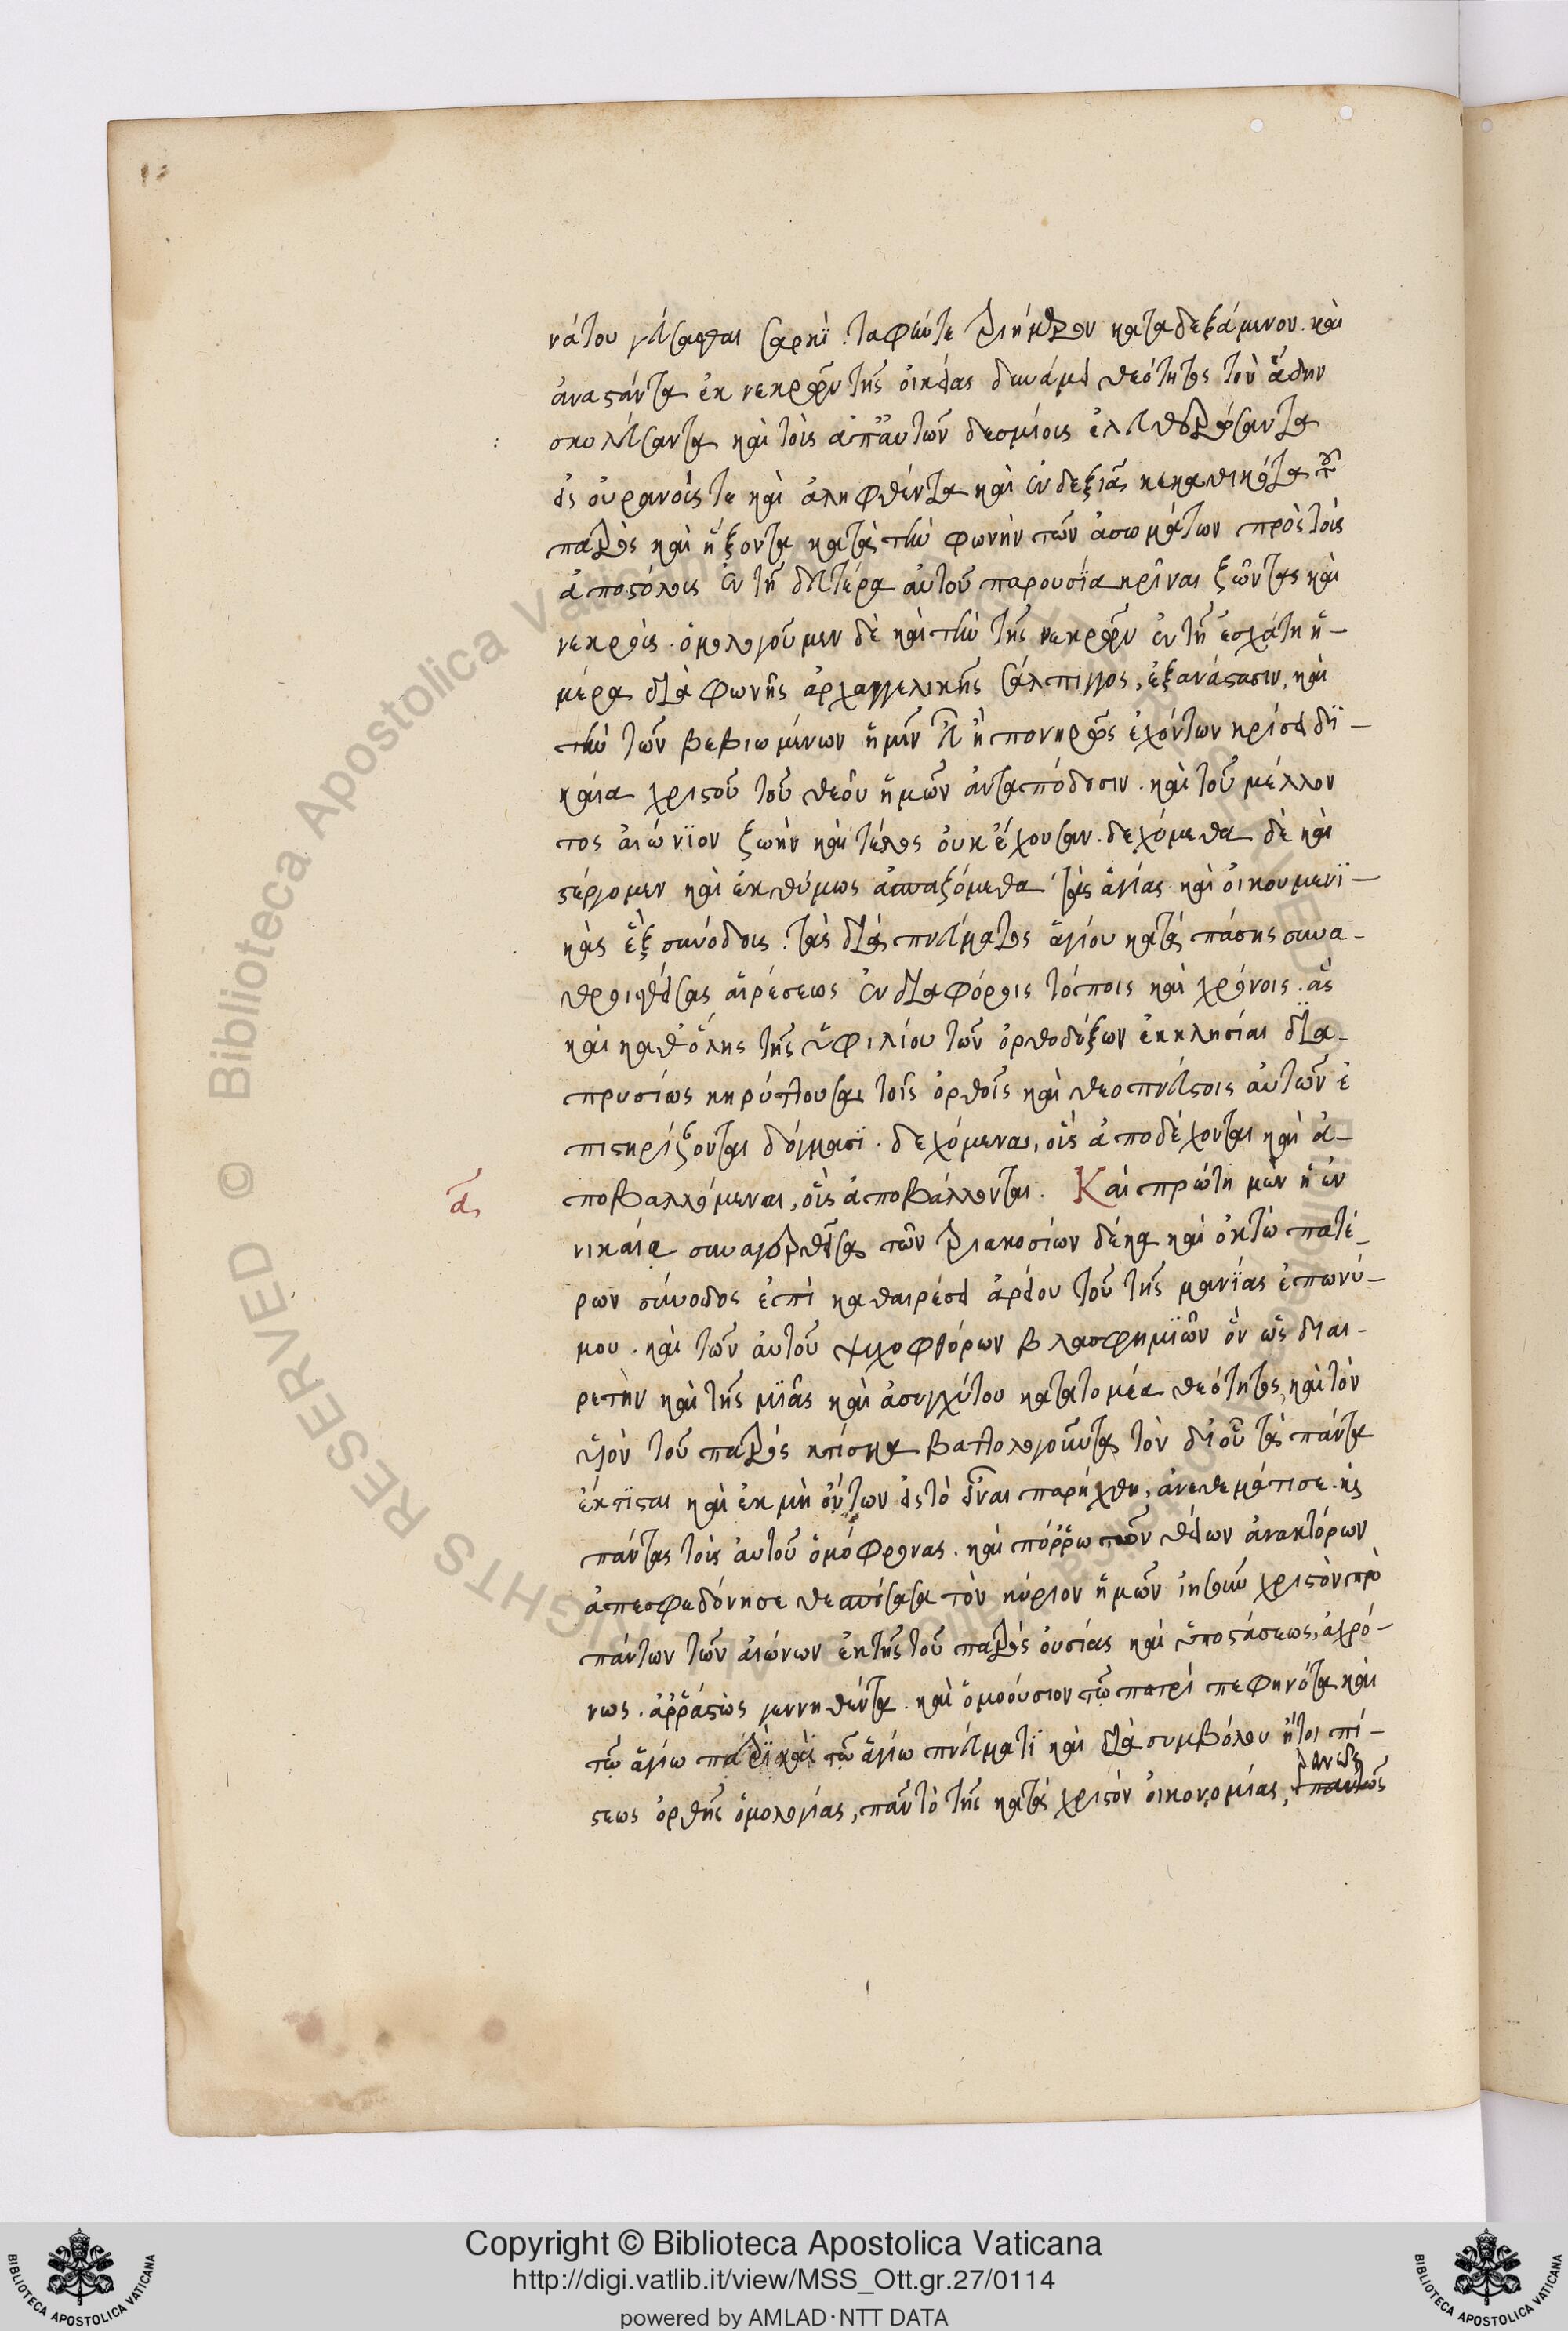 νάτου γεύσασθαι σαρκὶ. ταφήν τε τριήμερον καταδεξάμενον. καὶ
ἀναστάντα ἐκ νεκρῶν τῆς οἰκείας δυνάμει θεότητος τὸν ἅδην
σκυλεύσαντα καὶ τοὺς ἀπ' αὐτῶν δεσμίους ἐλευθερώσαντα
εἰς οὐρανούς τε καὶ ἀληφθέντα καὶ ἐν δεξιᾷ κεκαθικότα τοῦ
πατρὸς καὶ ἥξοντα κατὰ τὴν φωνὴν τῶν ἀσωμάτων πρὸς τοὺς
ἀποστόλους ἐν τῇ δευτέρα αὐτοῦ παρουσία κρῖναι ζῶντας καὶ
νεκρούς. ὁμολογοῦμεν δὲ καὶ τὴν τῆς νεκρῶν ἐν τῇ ἐσχάτη ἡ-
μέρα διὰ φωνῆς ἀρχαγγελικῆς σάλπιγγος, ἐξανάστασιν, καὶ
τὴν τῶν βεβιωμένων ἡμῖν εὖ ἢ πονηρῶς ἐχόντων κρίσει δι-
καία χριστοῦ τοῦ θεοῦ ἡμῶν ἀνταπόδοσιν. καὶ τοῦ μέλλον
τος αἰώνιον ζωὴν καὶ τέλος οὐκ ἔχουσαν. δεχόμεθα δὲ καὶ
στέργομεν καὶ ἐκθύμως ἀσπαζόμεθα τὰς ἁγίας καὶ οἰκουμενι-
κὰς ἓξ συνόδους. τὰς διὰ πνεύματος ἁγίου κατὰ πάσης συνα-
θροισθείσας αἱρέσεως ἐν διαφόροις τόποις καὶ χρόνοις. ἃς
καὶ καθ' ὅλης τῆς ὑφιλίου τῶν ὀρθοδόξων ἐκκλησίαι δια-
πρυσίως κηρύττουσαι τοῖς ὀρθοῖς καὶ θεοπνεύστοις αὐτῶν ἐ
πιστηρίζονται δόγμασι. δεχόμεναι, οὓς ἀποδέχονται καὶ ἀ-
ποβαλλόμεναι, οὓς ἀποβάλλονται. Καὶ πρώτη μὲν ἡ ἐν
α
νικαία συναγερθεῖσα τῶν τριακοσίων δέκα καὶ ὀκτὼ πατέ-
ρων σύνοδος ἐπὶ καθαιρέσει ἀρείου τοῦ τῆς μανίας ἐπωνύ-
μου. καὶ τῶν αὐτοῦ ψυχοφθόρων βλασφημιῶν ὃν ὡς διαι-
ρετὴν καὶ τῆς μιᾶς καὶ ἀσυγχύτου κατατομέα θεότητος, καὶ τὸν
υἱὸν τοῦ πατρὸς κτίσμα βαττολογοῦντα τὸν δι' οὗ τὰ πάντα
ἔκτισται καὶ ἐκ μὴ ὄντων εἰς τὸ εἶναι παρήχθη, ἀνεθεμάτισε. καὶ
πάντας τοὺς αὐτοῦ ὁμόφρονας. καὶ πόῤῥω τῶν θείων ἀνακτόρων
ἀπεσφεδόνησε θεσπίσασα τὸν κύριον ἡμῶν ἰησοῦν χριστὸν πρὸ
πάντων τῶν αἰώνων ἐκ τῆς τοῦ πατρὸς οὐσίας καὶ ὑποστάσεως, ἀχρό-
νως. ἀῤῥάστως γεννηθέντα. καὶ ὁμοούσιον τῷ πατρὶ πεφηνότα καὶ
τῷ ἁγίω πατρὶ καὶ τῷ ἁγίω πνεύματι καὶ διὰ συμβόλου ἤτοι πί-
στεως ὀρθῆς ὁμολογίας, παντὸ τῆς κατὰ χριστὸν οἰκονομίας,